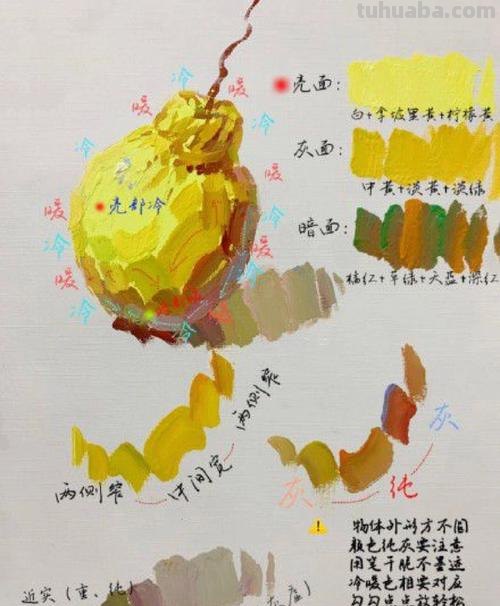 tuhuaba.com
冷
暖
暖
冷
冷
亮面：
白+拿坡里黄+柠檬黄
灰面：
中黄+淡黄+淡绿
暗面：
橘红+草绿+天蓝+深红
暖
亮部冷
暖
冷
冷
暖
暖
冷
冷
冷
两侧窄
中间宽
两侧窄
灰
纯
灰
物体外形方不圆
颜色纯灰要注意
用笔干脆不墨迹
冷暖色相要对应
勾勾点点放轻松
近实（重、纯）